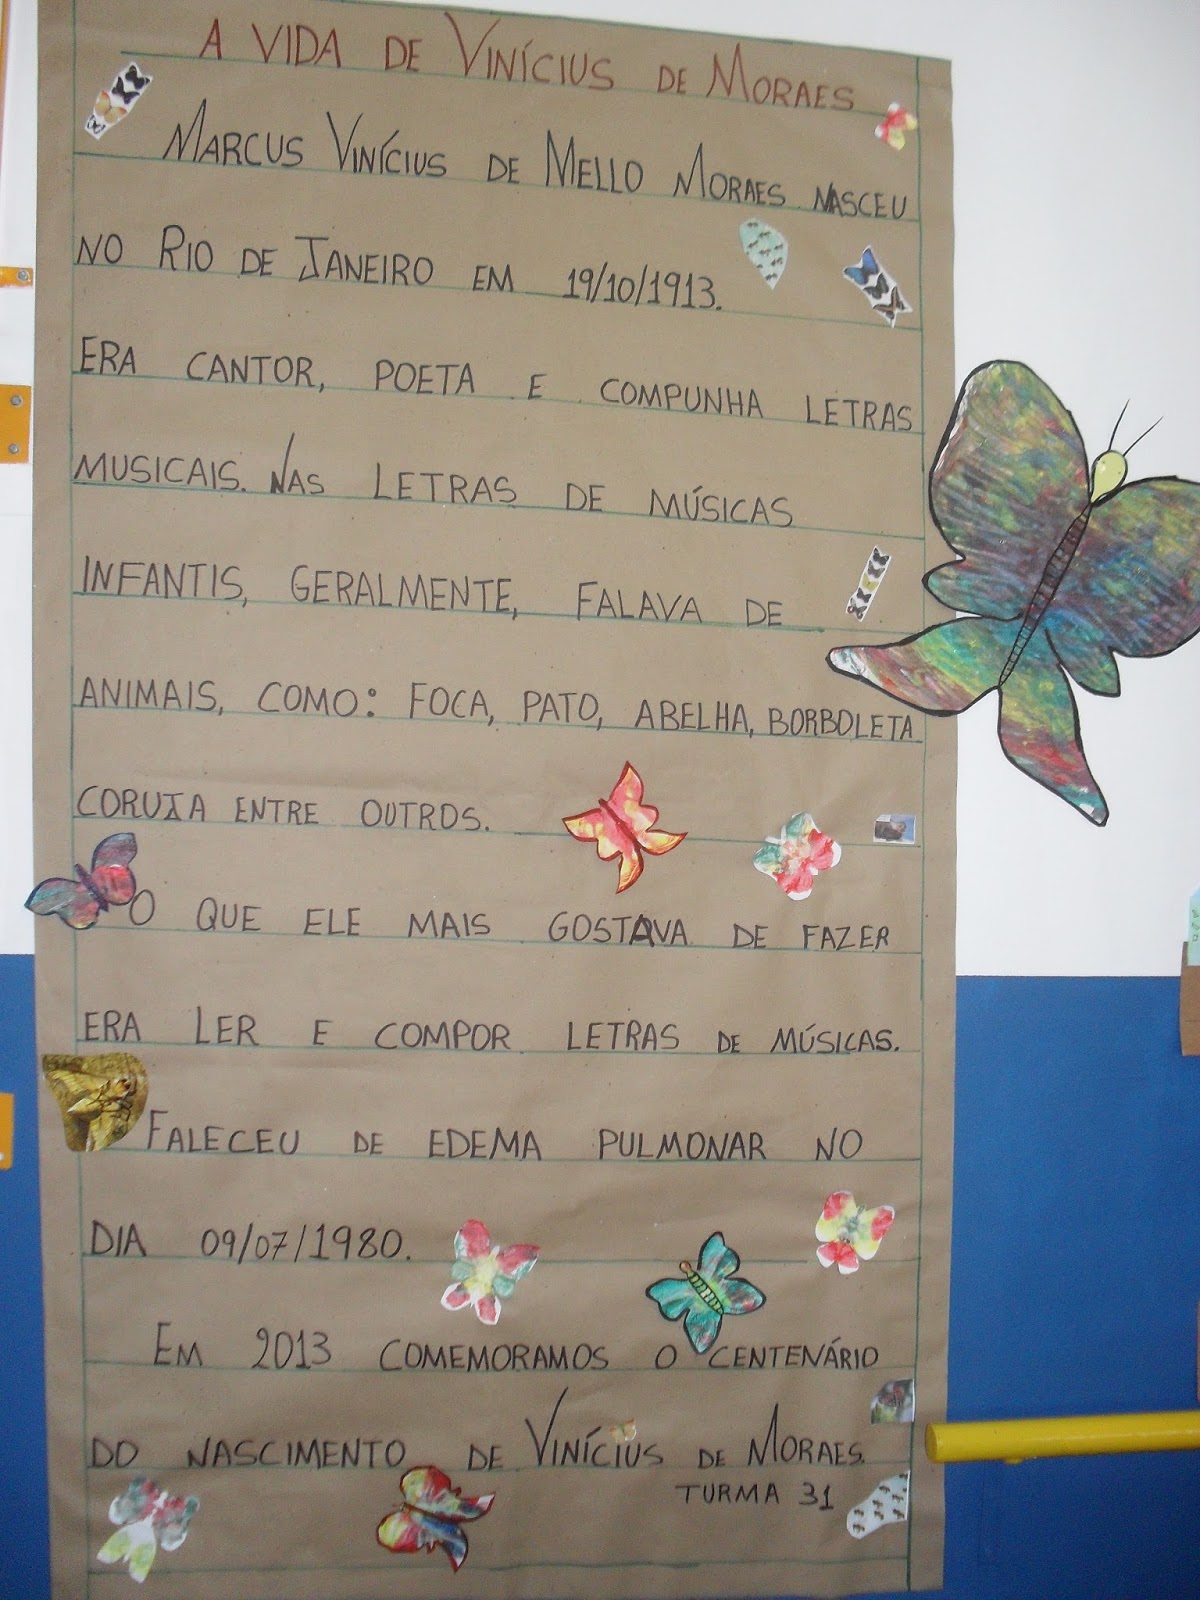 A VIDA DE VINÍCIUS DE MORAES
MARCUS VINÍCIUS DE MELLO MORAES NASCEU
NO RIO DE JANEIRO EM 19/10/1913.
ERA CANTOR, POETA E COMPUNHA LETRAS
MUSICAIS. NAS LETRAS DE MÚSICAS
INFANTIS, GERALMENTE, FALAVA DE
ANIMAIS, COMO: FOCA, PATO, ABELHA, BORBOLETA
CORUJA ENTRE OUTROS.
O QUE ELE MAIS GOSTAVA DE FAZER
ERA LER E COMPOR LETRAS DE MÚSICAS.
FALECEU DE EDEMA PULMONAR NO
DIA 09/07/1980.
EM 2013 COMEMORAMOS O CENTENÁRIO
DO NASCIMENTO DE VINÍCIUS DE MORAES.
TURMA 31